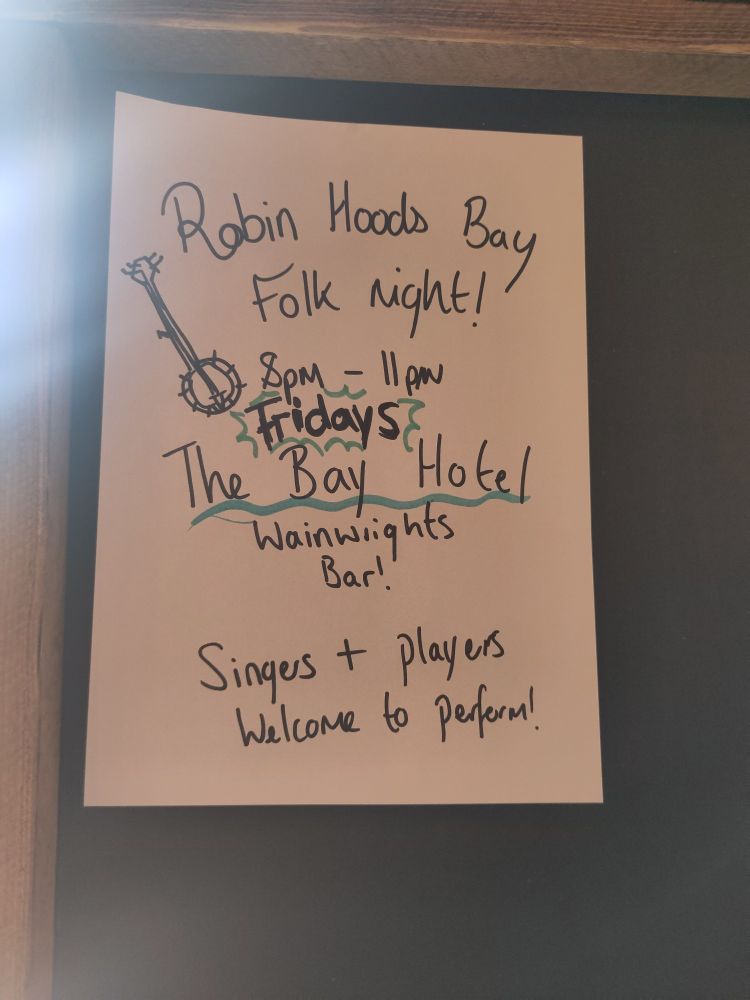 Robin Hoods Bay
Folk night!
8pm - 11pm
Fridays
The Bay Hotel
Wainwrights
Bar!
Singers + players
Welcome to perform!